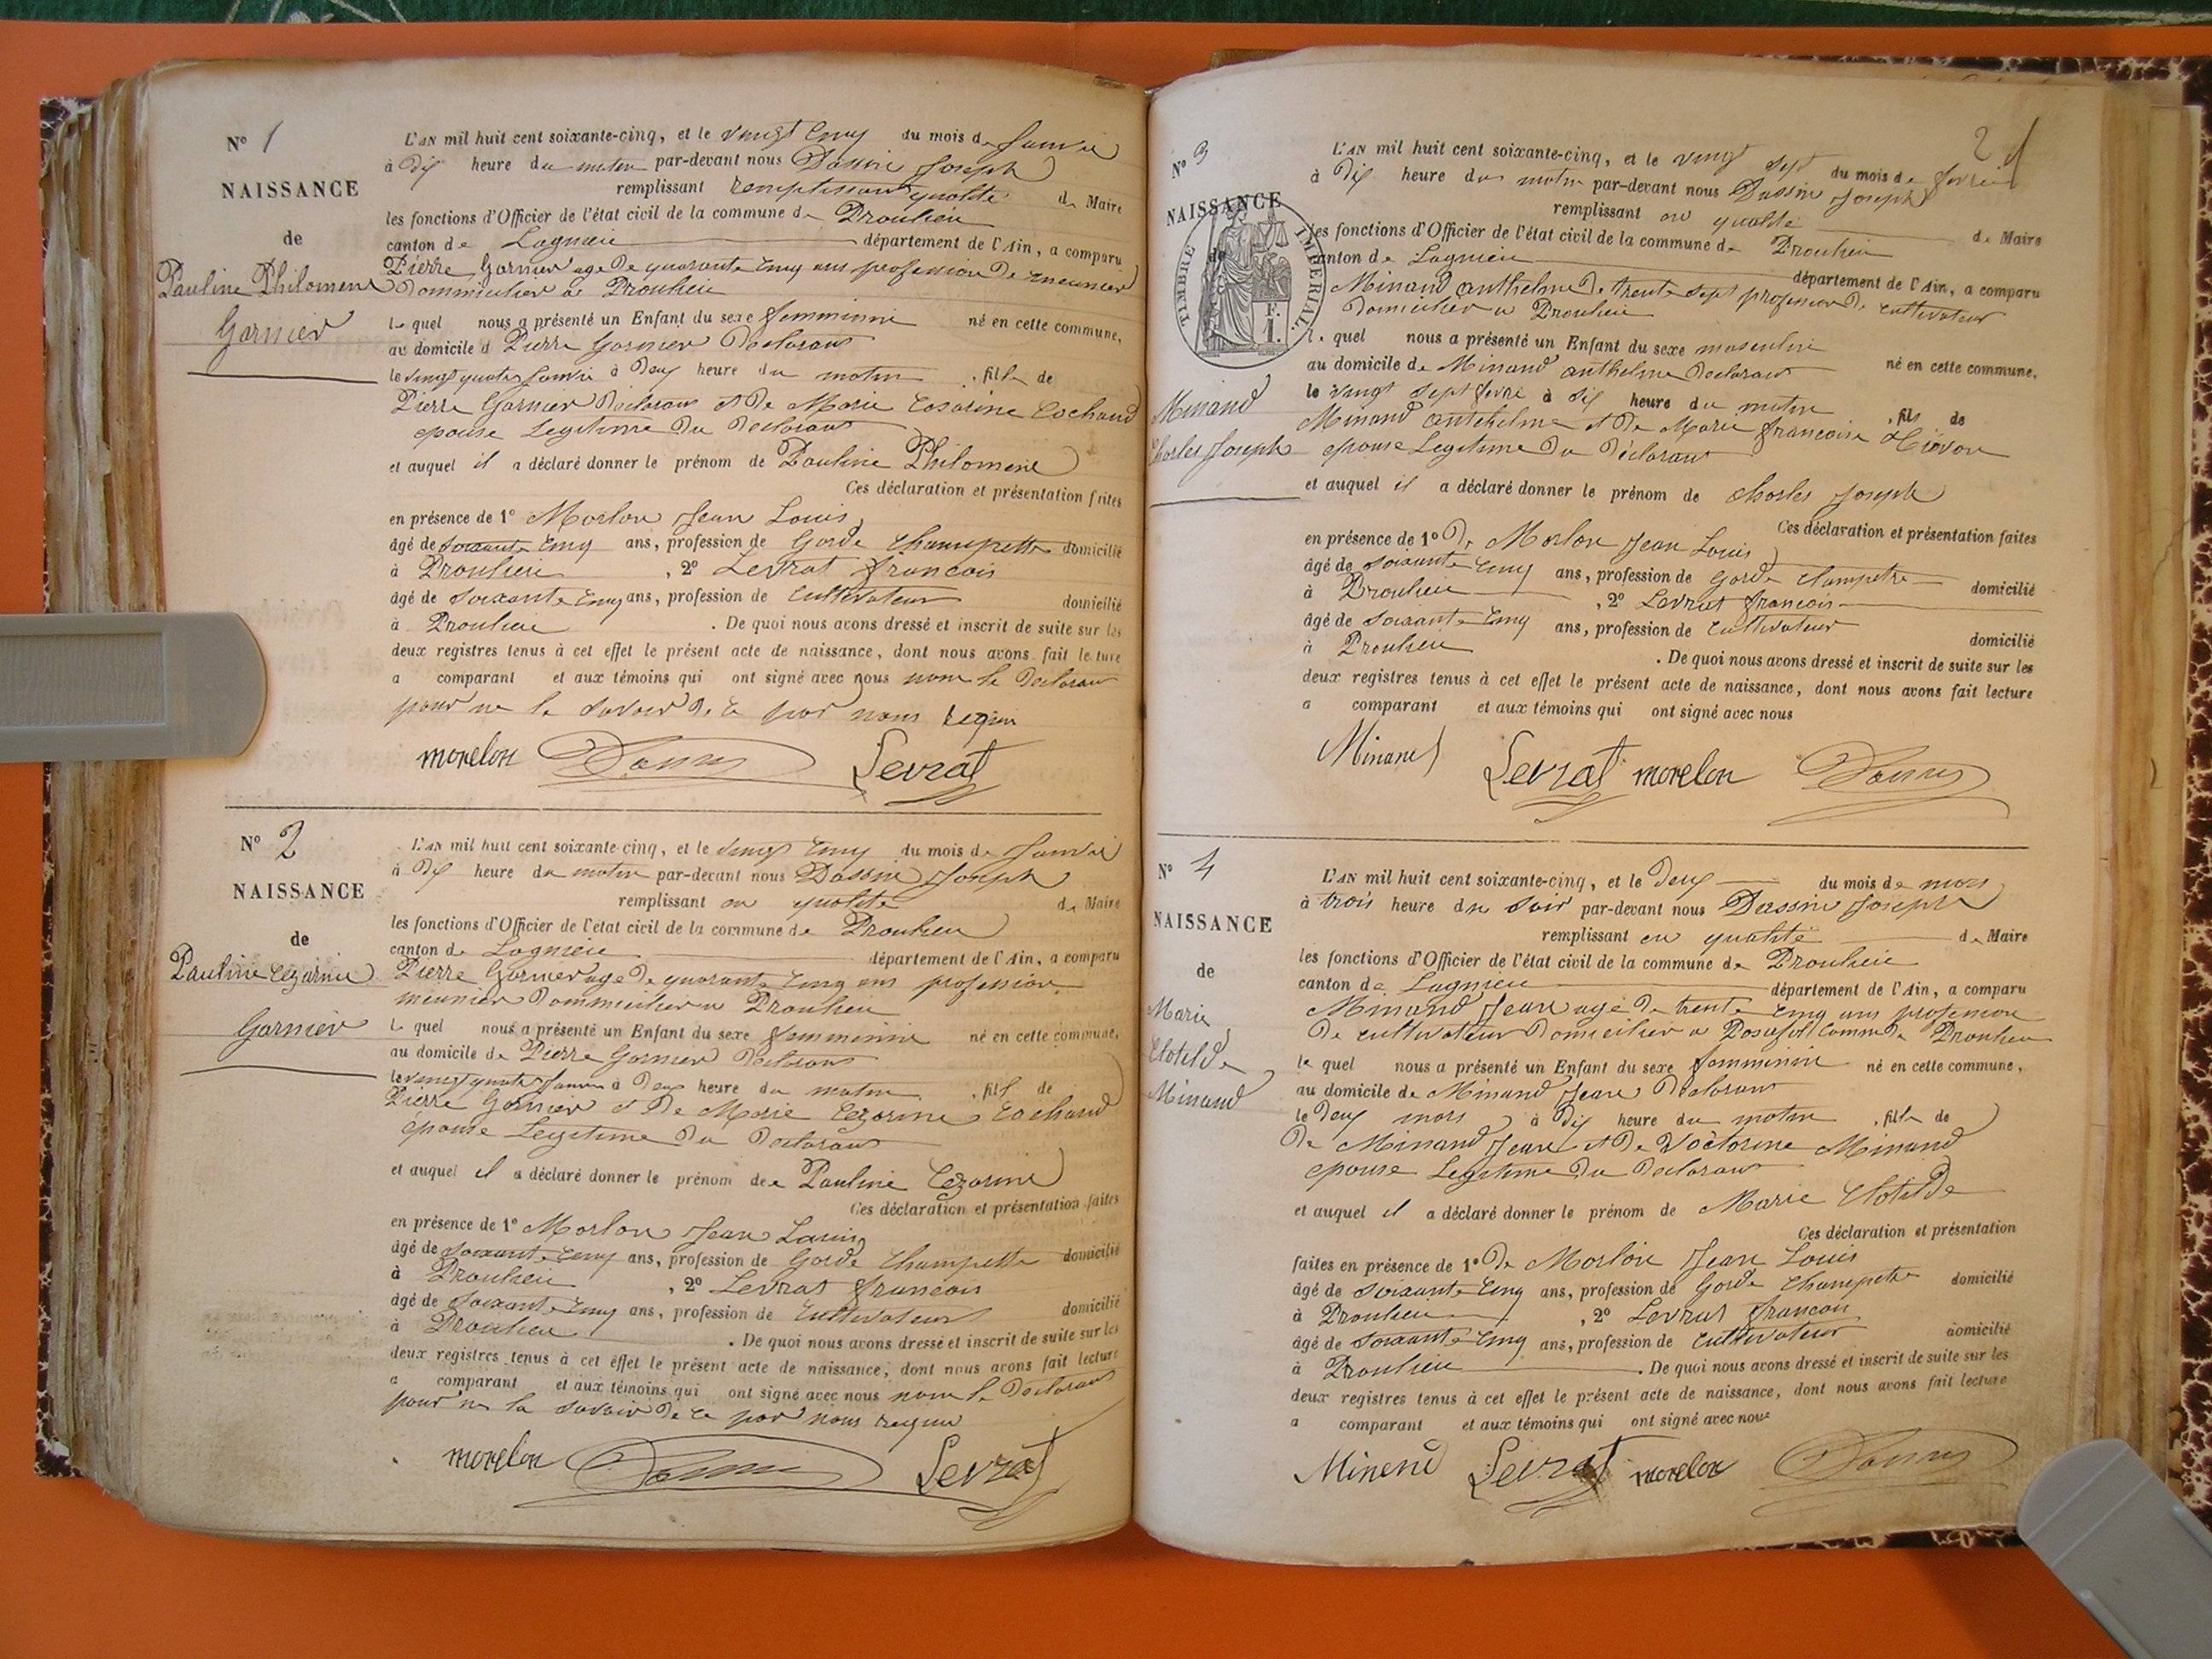 N° 1
NAISSANCE
de
Pauline Philomene
Garnier
L'AN mil huit cent soixante-cinq, et le vingt cinq du mois de Janvie
à dix heure du matin par-devant nous Dassin Joseph
remplissant remplissant qualité de Maire
les fonctions d'Officier de l'état civil de la commune de Proulieu
canton de Lagnieu département de l'Ain, a comparu
Pierre Garnier age de quarante cinq ans profession de meunier
dommicilier a Proulieu
le quel nous a présenté un Enfant du sexe femminin né en cette commune,
au domicile d Pierre Garnier declarant
le vingt quatre Janvie à deux heure du matin, fille de
Pierre Garnier declarant et de Marie Cesarine Cochand
epouse Legitime du declarant
et auquel il a déclaré donner le prénom de Pauline Philomene
Ces déclaration et présentation faites
en présence de 1° Morlon Jean Louis
âgé de soixante cinq ans, profession de Garde Champette domicilié
à Proulieu, 2° Levrat francois
âgé de soixante cinq ans, profession de Cultivateur domicilié
à Proulieu. De quoi nous avons dressé et inscrit de suite sur les
deux registres tenus à cet effet le présent acte de naissance, dont nous avons fait lecture
a comparant et aux témoins qui ont signé avec nous non le declarant
pour ne le savoir de ce par nous requin
morelon Dassin Levrat
N° 2
NAISSANCE
de
Pauline Cezarine
Garnier
L'AN mil huit cent soixante-cinq, et le vingt cinq du mois de Janvie
à dix heure du matin par-devant nous Dassin Joseph
remplissant en qualité de Maire
les fonctions d'Officier de l'état civil de la commune de Proulieu
canton de Lagnieu département de l'Ain, a comparu
Pierre Garnier age de quarante cinq ans profession
meunier dommicilier a Proulieu
le quel nous a présenté un Enfant du sexe femminin né en cette commune,
au domicile de Pierre Garnier declarant
le vingt quatre Janvie à deux heure du matin, fille de
Pierre Garnier et de Marie Cezarine Cochand
épouse Legitime du declarant
et auquel il a déclaré donner le prénom de Pauline Cezarine
Ces déclaration et présentation faites
en présence de 1° Morlon Jean Louis
âgé de soixante cinq ans, profession de Garde Champette domicilié
à Proulieu, 2° Levrat francois
âgé de soixante cinq ans, profession de Cultivateur domicilié
à Proulieu. De quoi nous avons dressé et inscrit de suite sur les
deux registres tenus à cet effet le présent acte de naissance, dont nous avons fait lecture
a comparant et aux témoins qui ont signé avec nous non le declarant
pour ne la savoir de ce par nous requin
morelon Dassin Levrat
2
N° 3
NAISSANCE
de
TIMBRE IMPÉRIAL
F.
1.
Minand
Charles Joseph
L'AN mil huit cent soixante-cinq, et le vingt sept du mois de fevrie
à dix heure du matin par-devant nous Dassin Joseph
remplissant en qualité de Maire
les fonctions d'Officier de l'état civil de la commune de Proulieu
canton de Lagnieu département de l'Ain, a comparu
Minand anthelme de trente sept profession de cultivateur
domicilier a Proulieu
le quel nous a présenté un Enfant du sexe masculin
au domicile de Minand anthelme declarant né en cette commune,
le vingt sept fevrie à six heure du matin, fils de
Minand antehelme et de Marie francoise
epouse Legitime du déclarant
et auquel il a déclaré donner le prénom de Charles Joseph
Ces déclaration et présentation faites
en présence de 1° De Morlon Jean Louis
âgé de soixante cinq ans, profession de Garde Champetre domicilié
à Proulieu, 2° Levrat francois
âgé de soixante cinq ans, profession de Cultivateur domicilié
à Proulieu. De quoi nous avons dressé et inscrit de suite sur les
deux registres tenus à cet effet le présent acte de naissance, dont nous avons fait lecture
a comparant et aux témoins qui ont signé avec nous
Minand Levrat morelon Dassin
N° 4
NAISSANCE
de
Marie
Clotilde
Minand
L'AN mil huit cent soixante-cinq, et le deux du mois de mars
à trois heure du soir par-devant nous Dassin Joseph
remplissant en qualité de Maire
les fonctions d'Officier de l'état civil de la commune de Proulieu
canton de Lagnieu département de l'Ain, a comparu
Minand Jean age de trente cinq ans profession
de cultivateur domicilier a Posafol comme de Proulieu
le quel nous a présenté un Enfant du sexe femminin né en cette commune,
au domicile de Minand Jean declarant
le deux mars à dix heure du matin, fille de
De Minand Jean et de Victorine Minand
epouse Legitime du declarant
et auquel il a déclaré donner le prénom de Marie Clotilde
Ces déclaration et présentation
faites en présence de 1° De Morlon Jean Louis
âgé de soixante cinq ans, profession de Garde Champetre domicilié
à Proulieu, 2° Levrat francois
âgé de soixante cinq ans, profession de Cultivateur domicilié
à Proulieu. De quoi nous avons dressé et inscrit de suite sur les
deux registres tenus à cet effet le présent acte de naissance, dont nous avons fait lecture
a comparant et aux témoins qui ont signé avec nous
Minand Levrat morelon Dassin